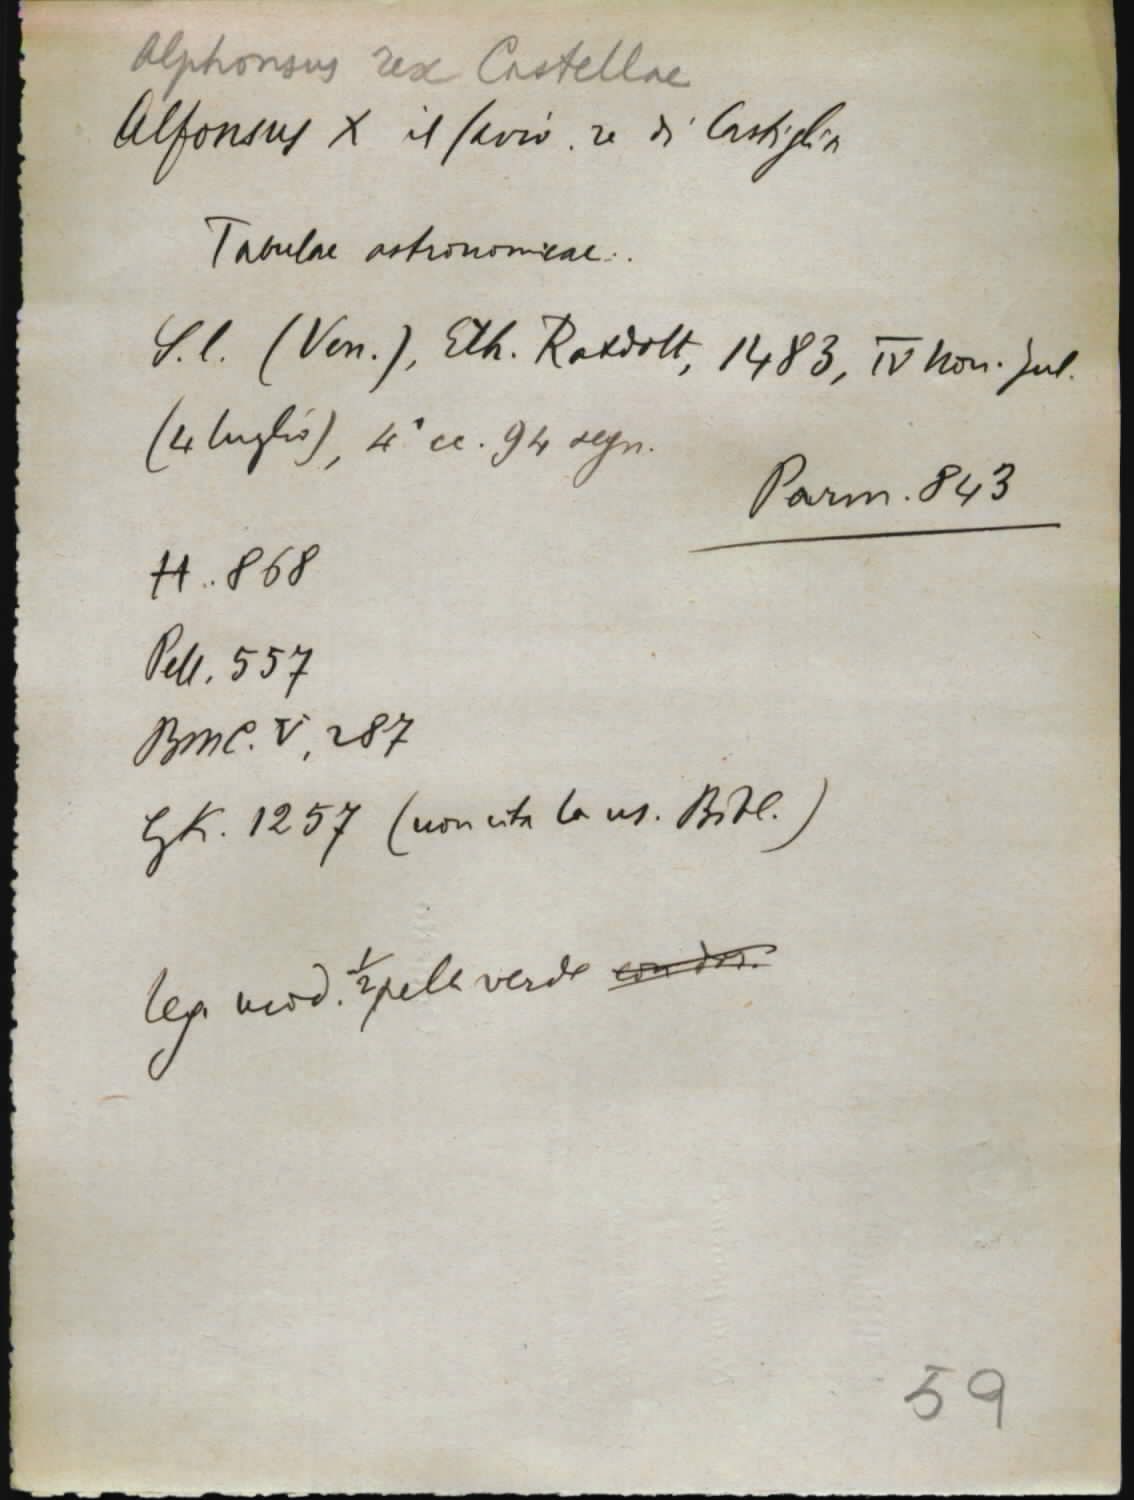 Alphonsus rex Castellae
Alfonsus X il savio. re di Castiglia
Tabulae astronomicae..
S.l. (Ven.), Eth. Ratdolt, 1483, IV Non. Jul.
(4 luglio), 4° cc. 94 segn.
Parm. 843
H. 868
Pell. 557
BMC. V, 287
GK. 1257 (non cita la ns. Bibl.)
leg. mod. 1/2 pelle verde con dor.
59